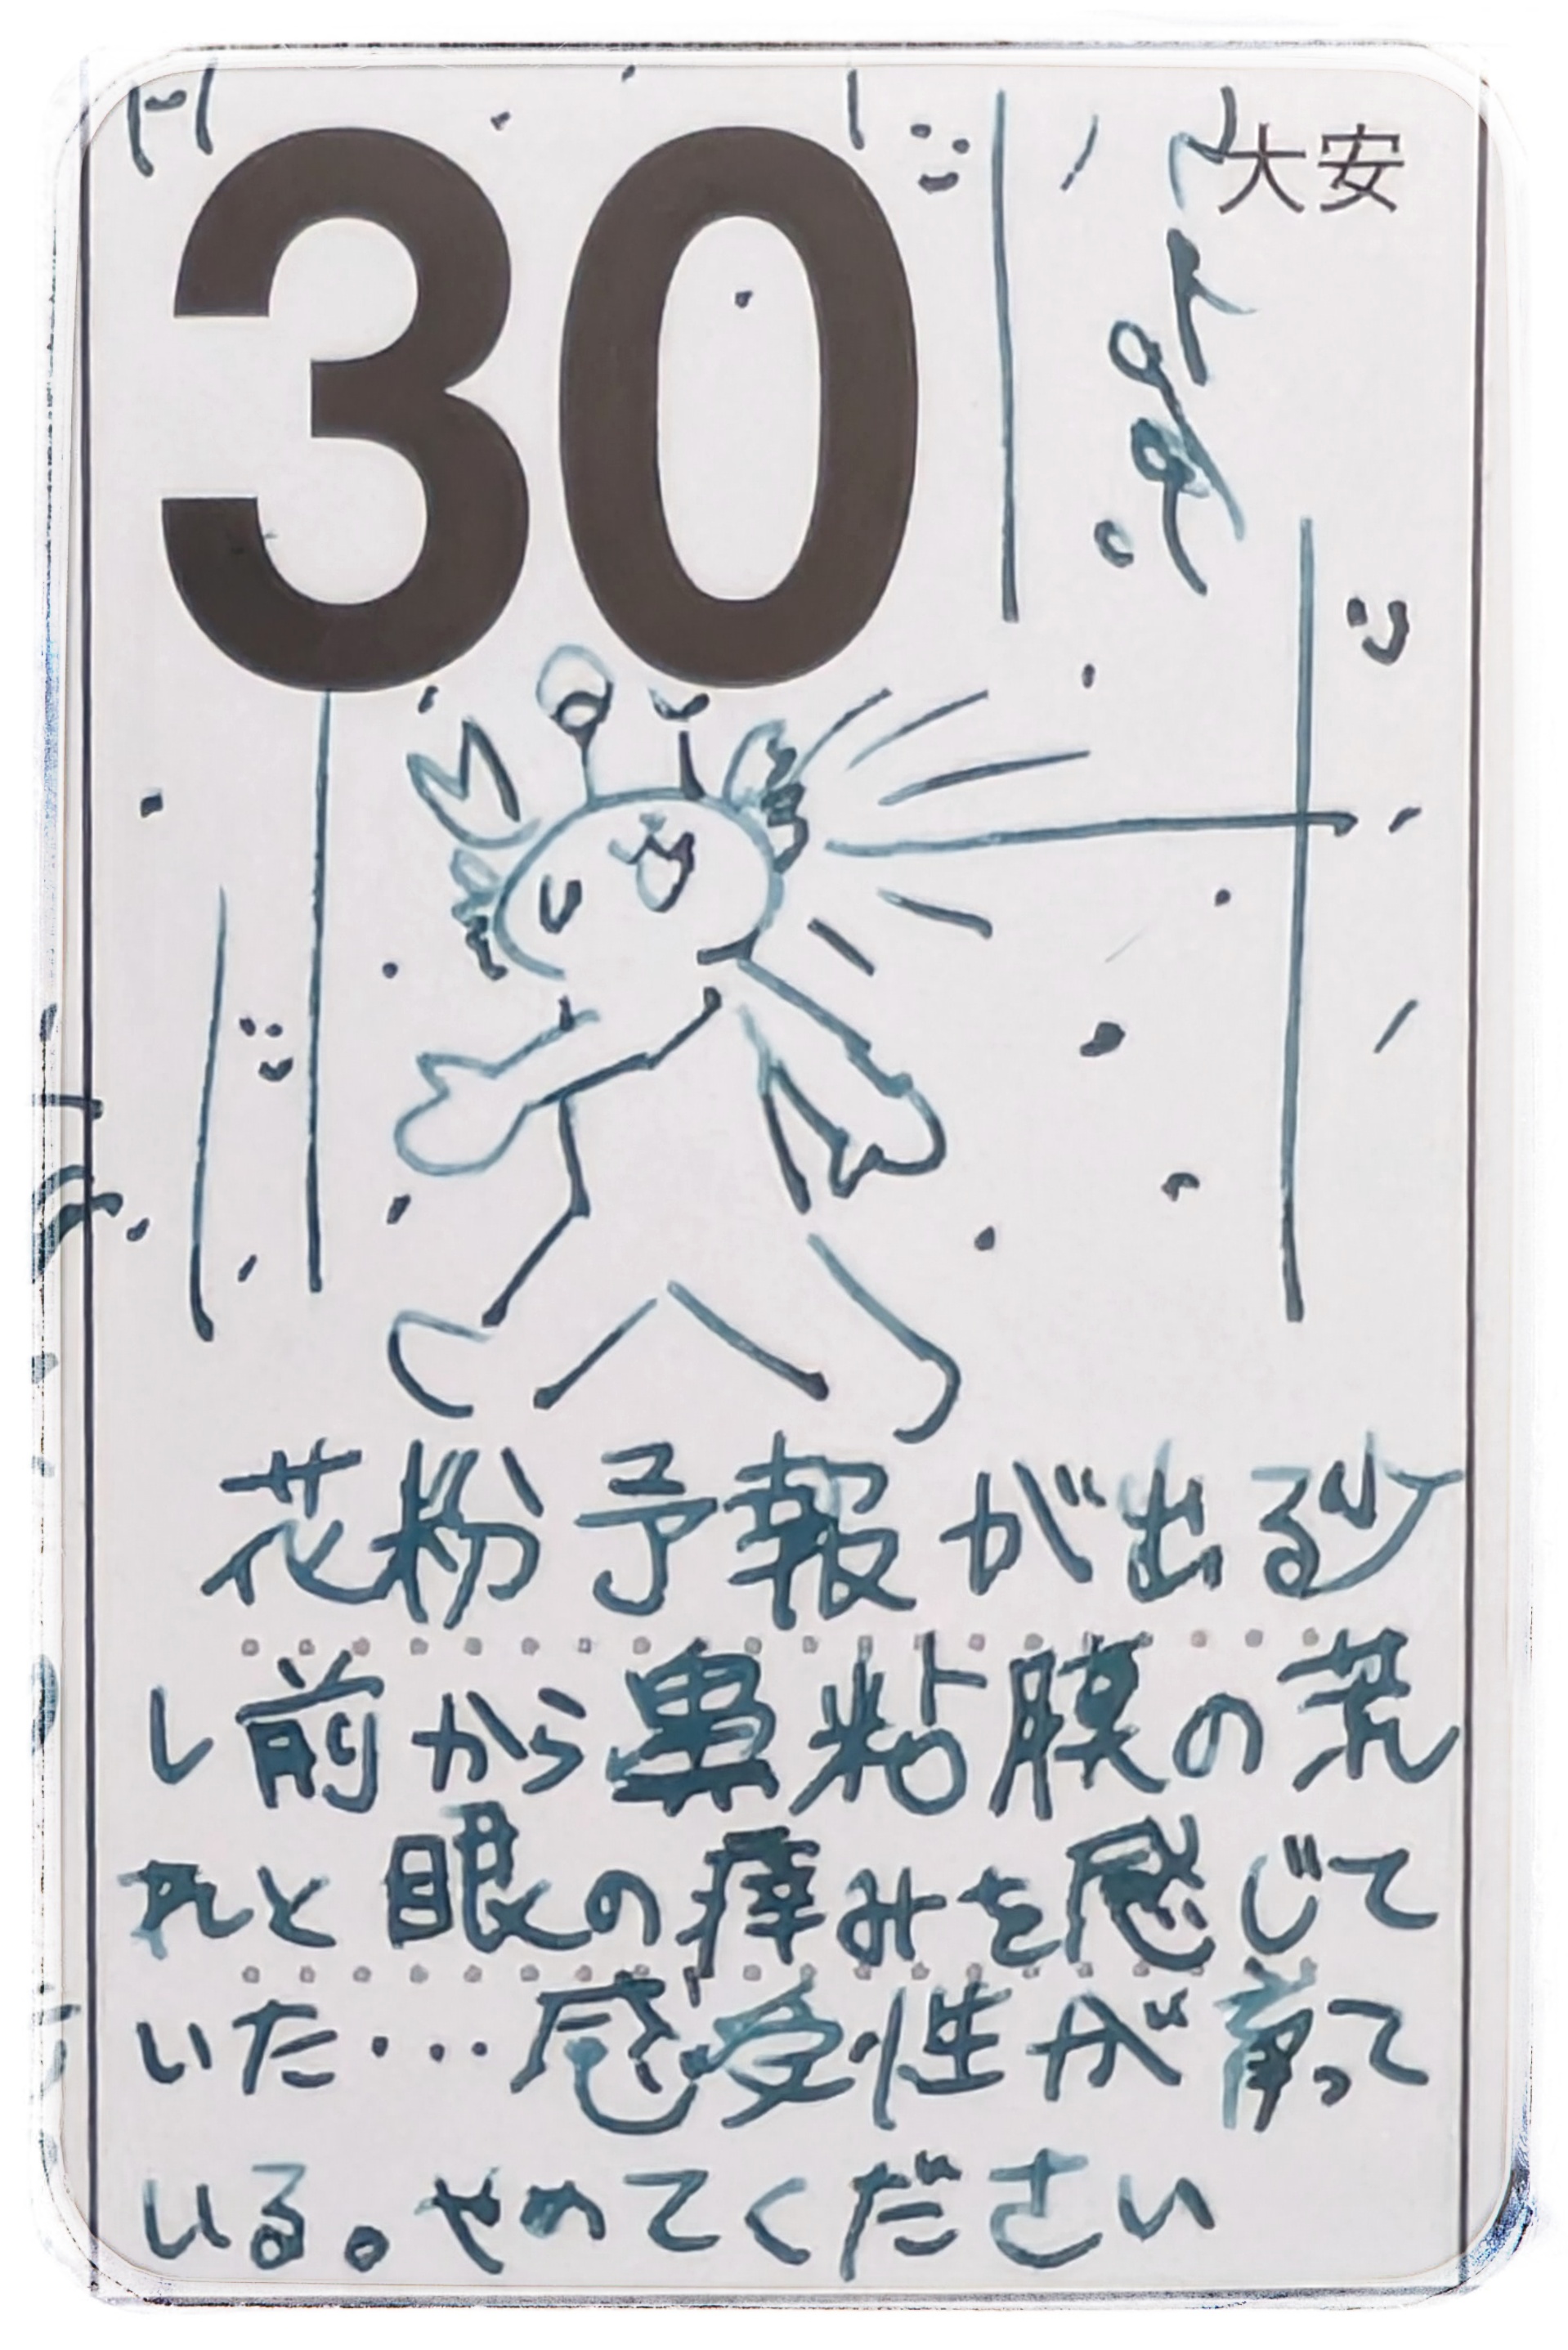 30
大安
花粉予報が出る少
し前から鼻粘膜の荒
れと眼の痒みを感じて
いた…感受性が育って
いる。やめてください